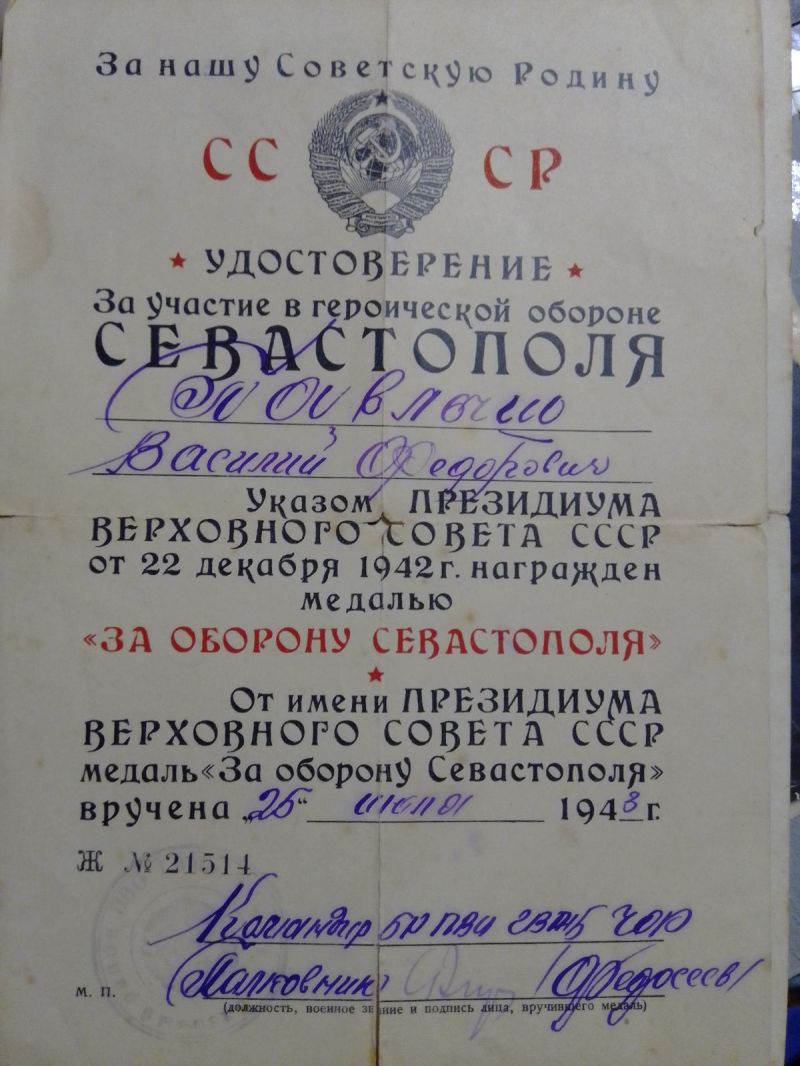 За нашу Советскую Родину
СССР
УДОСТОВЕРЕНИЕ
За участие в героической обороне
СЕВАСТОПОЛЯ
Василий Федорович
Указом ПРЕЗИДИУМА
ВЕРХОВНОГО СОВЕТА СССР
от 22 декабря 1942 г. награжден
медалью
«ЗА ОБОРОНУ СЕВАСТОПОЛЯ»
От имени ПРЕЗИДИУМА
ВЕРХОВНОГО СОВЕТА СССР
медаль «За оборону Севастополя»
вручена „25“ июля 1943 г.
Ж № 21514
Командир бр ПВО ЧОР
Полковник (Федосеев)
М. П.
(должность, военное звание и подпись лица, вручившего медаль)